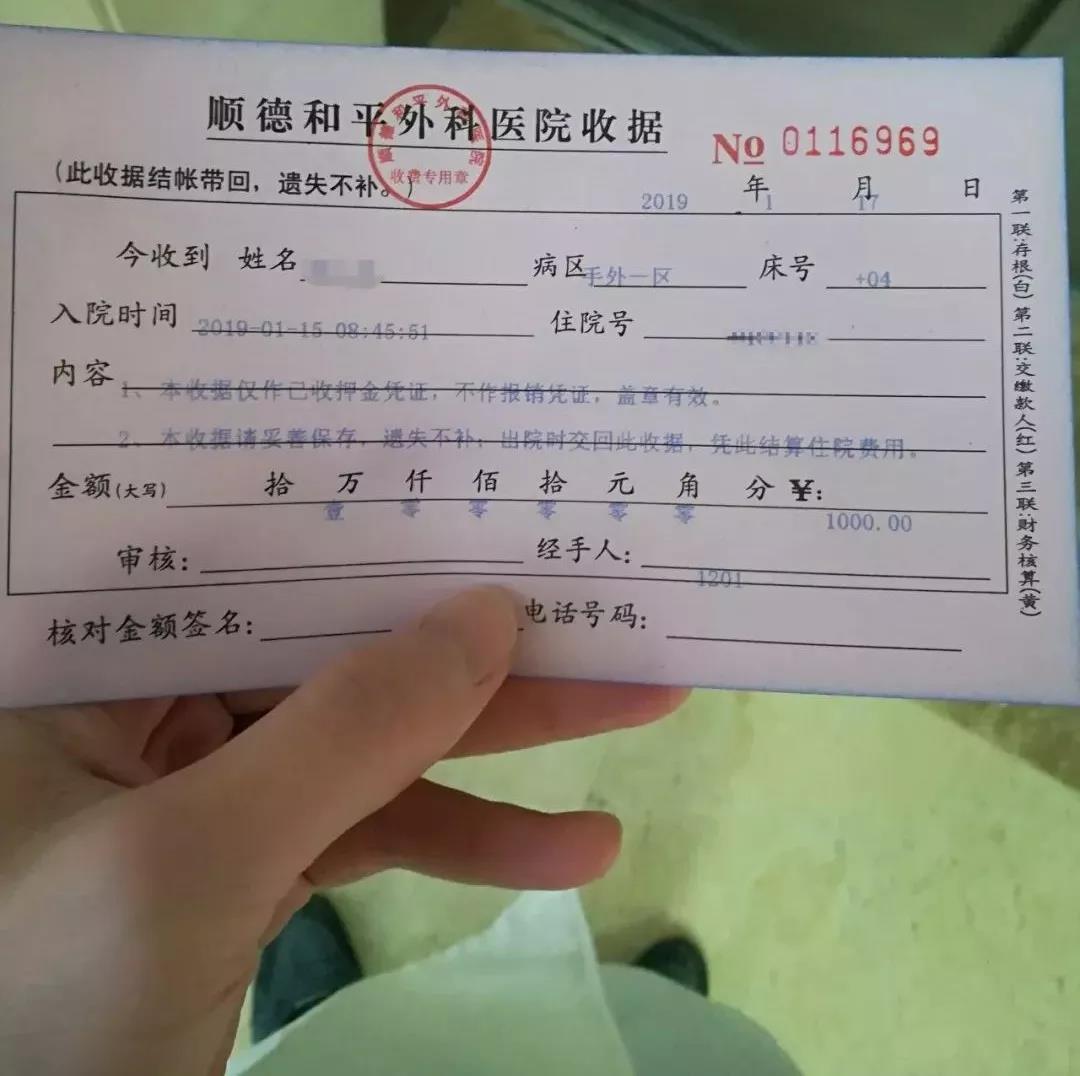 顺德和平外科医院收据
No 0116969
(此收据结帐带回，遗失不补。)
收费专用章
2019 年 1 月 17 日
今收到 姓名 病区 手外一区 床号 +04
入院时间 2019-01-15 08:45:51 住院号
内容 1、本收据仅作已收押金凭证，不作报销凭证，盖章有效。
2、本收据请妥善保存，遗失不补；出院时交回此收据，凭此结算住院费用。
金额(大写) 拾 万 仟 佰 拾 元 角 分 ¥:
壹 零 零 零 零 零 1000.00
审核: 经手人: 1201
核对金额签名: 电话号码:
第一联:存根(白) 第二联:交缴款人(红) 第三联:财务核算(黄)